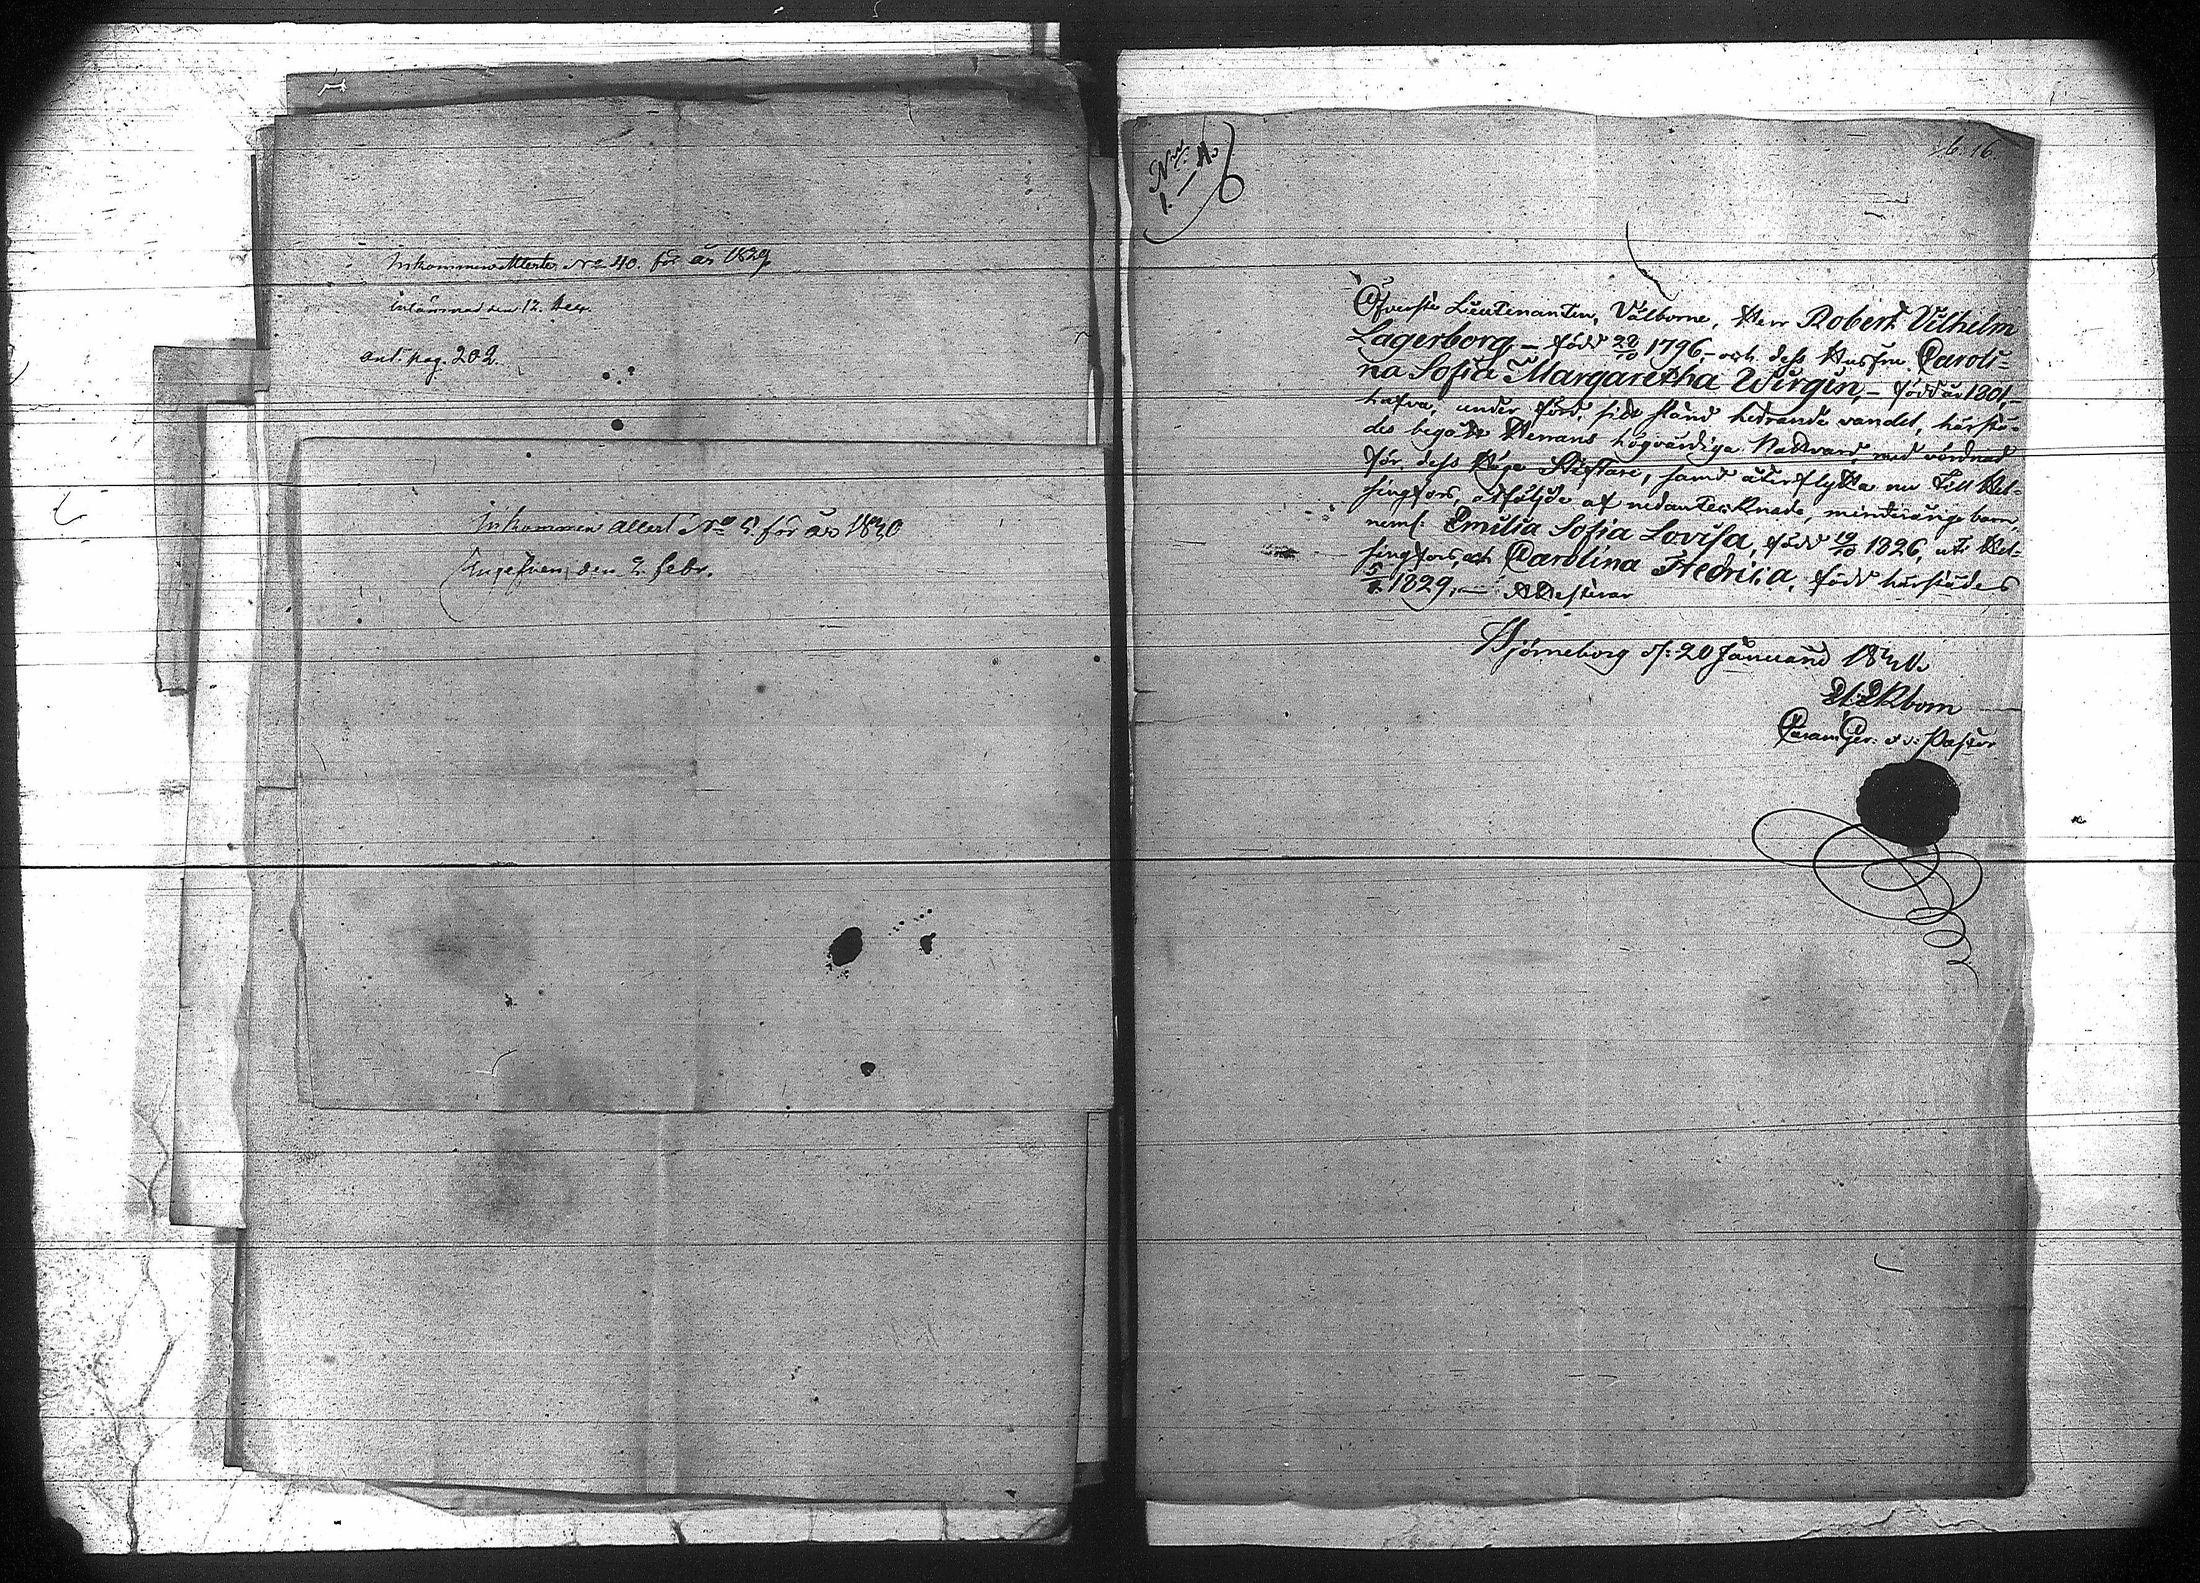 Inkommen Attest No 40. för år 1829
inlämnad den 12. Dec.
ant. pag. 202.
Inkommen attest No 5. för år 1830
Ingifven den 2. febr.
No
1.
16.
Öfverste Lieutenanten, Välborne, Herr Robert Vilhelm
Lagerborg – född 1796, – och dess Husfru Caroli-
na Sofia Margaretha Wirgin, – född år 1801, –
hafva, under förd, sitt stånd hedrande vandel, härstä-
des begått Herrans högvärdiga Nattvard med vördnad
för dess Höge Stiftare, samt återflytta nu till Hel-
singfors, åtföljde af nedantecknade, minderåriga barn,
neml: Emilia Sofia Lovisa, född 19/10 1826, uti Hel-
singfors, och Carolina Fredrica, född härstädes
1829, – Attesterar
Björneborg d: 20 Januarii 1830.
Ekbom
v: Pastor